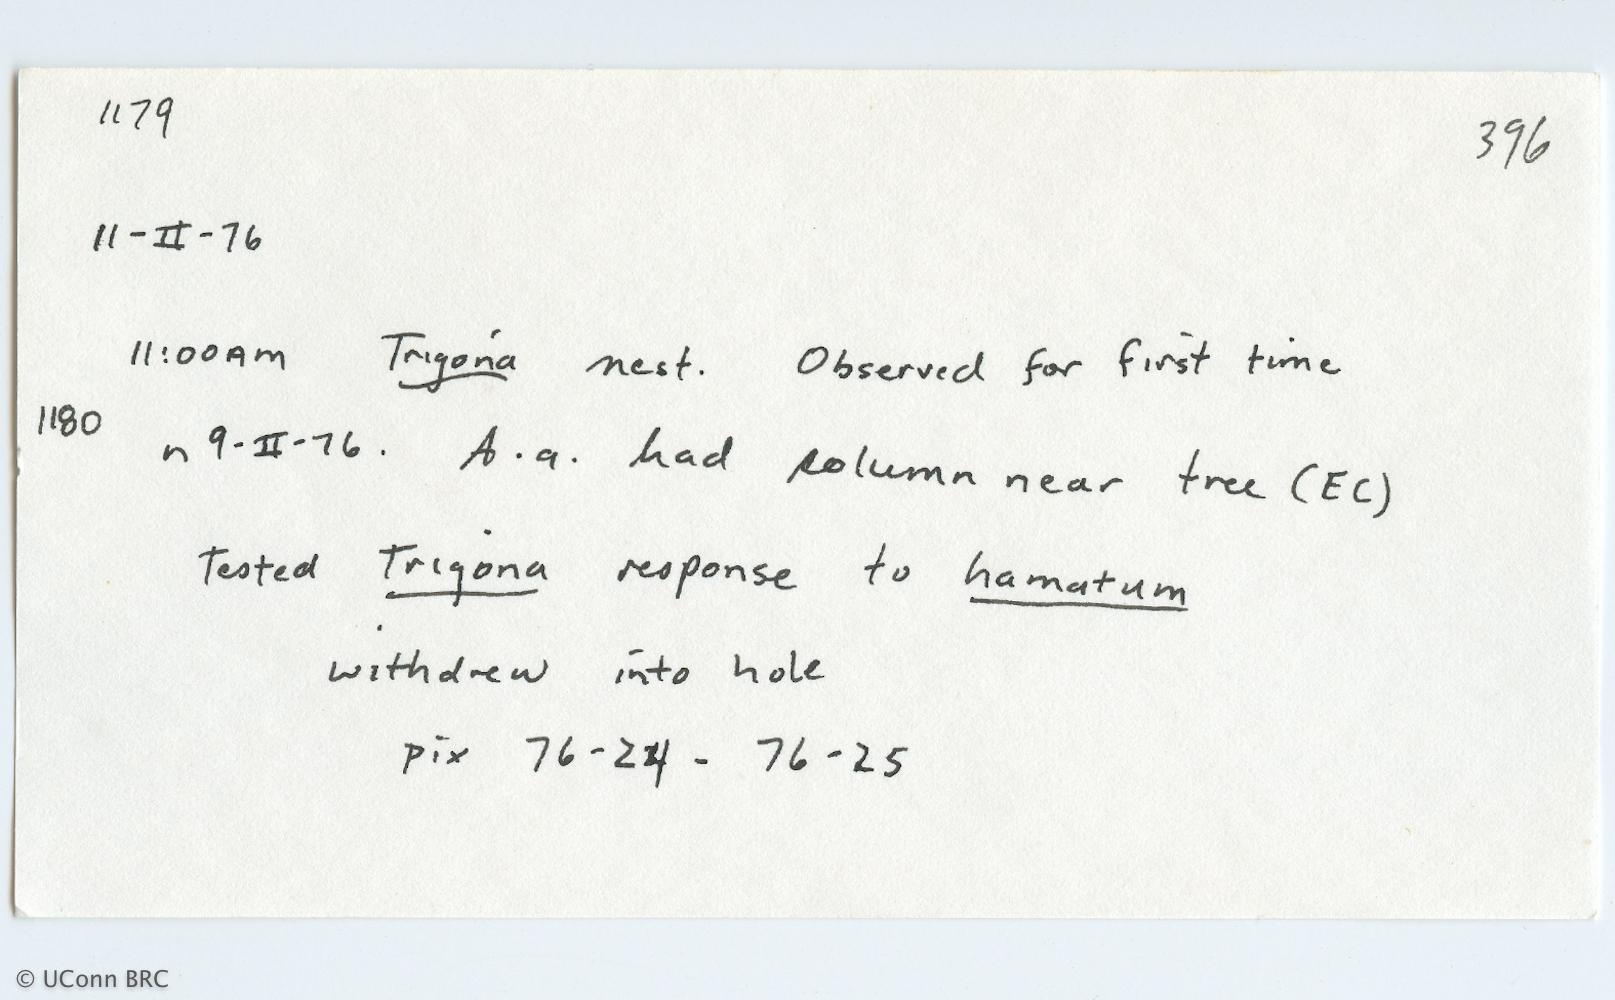 1179
396
11-II-76
11:00AM Trigona nest. Observed for first time
1180
n 9-II-76. A.a. had column near tree (EC)
Tested Trigona response to hamatum
withdrew into hole
pix 76-24 - 76-25
© UConn BRC